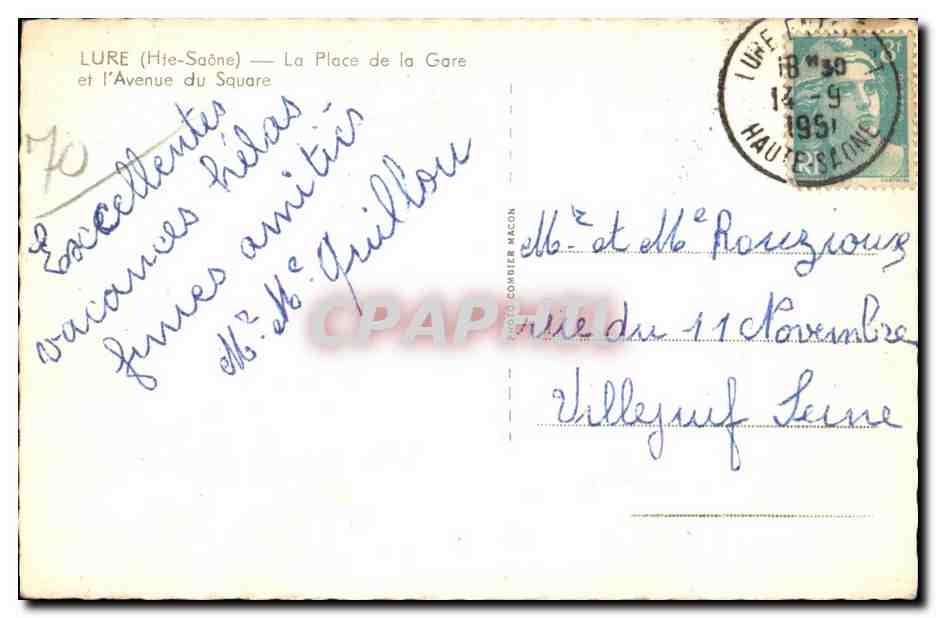 LURE (Hte-Saône) — La Place de la Gare
et l'Avenue du Square
70
Excellentes
vacances hélas
fines amitiés
Mr. Me. Guillou
PHOTO COMBIER MACON
LURE
18 H 30
14 - 9
1951
HAUTE SAONE
8f
RF
Mr et Me Rouzioux
rue du 11 Novembre
Villejuif Seine
CPAPHIL